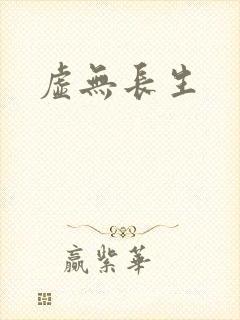 虛無長生
贏紫華